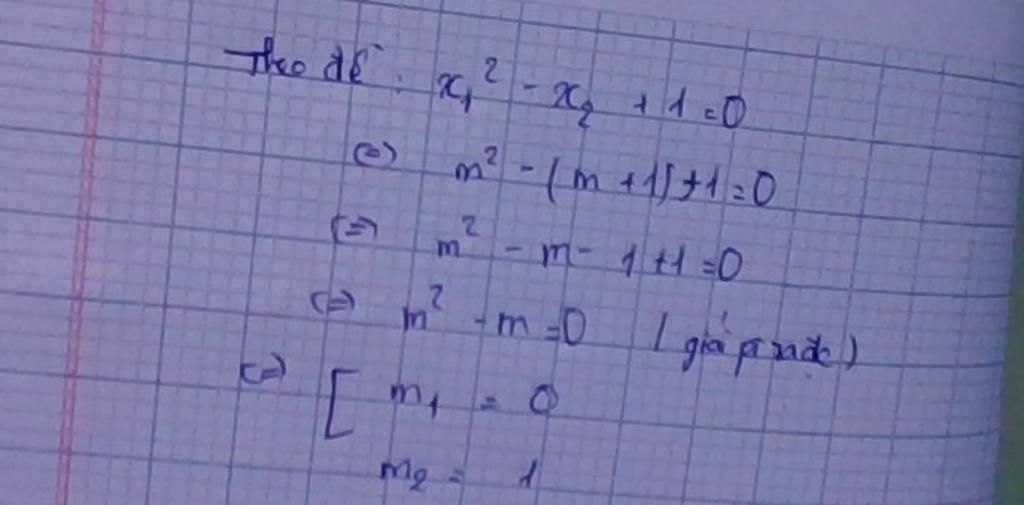 Theo đề : x₁² - x₂ + 1 = 0
(=) m² - (m + 1) + 1 = 0
(=) m² - m - 1 + 1 = 0
(=) m² - m = 0 (giải pt
(=) [ m₁ = 0
m₂ = 1